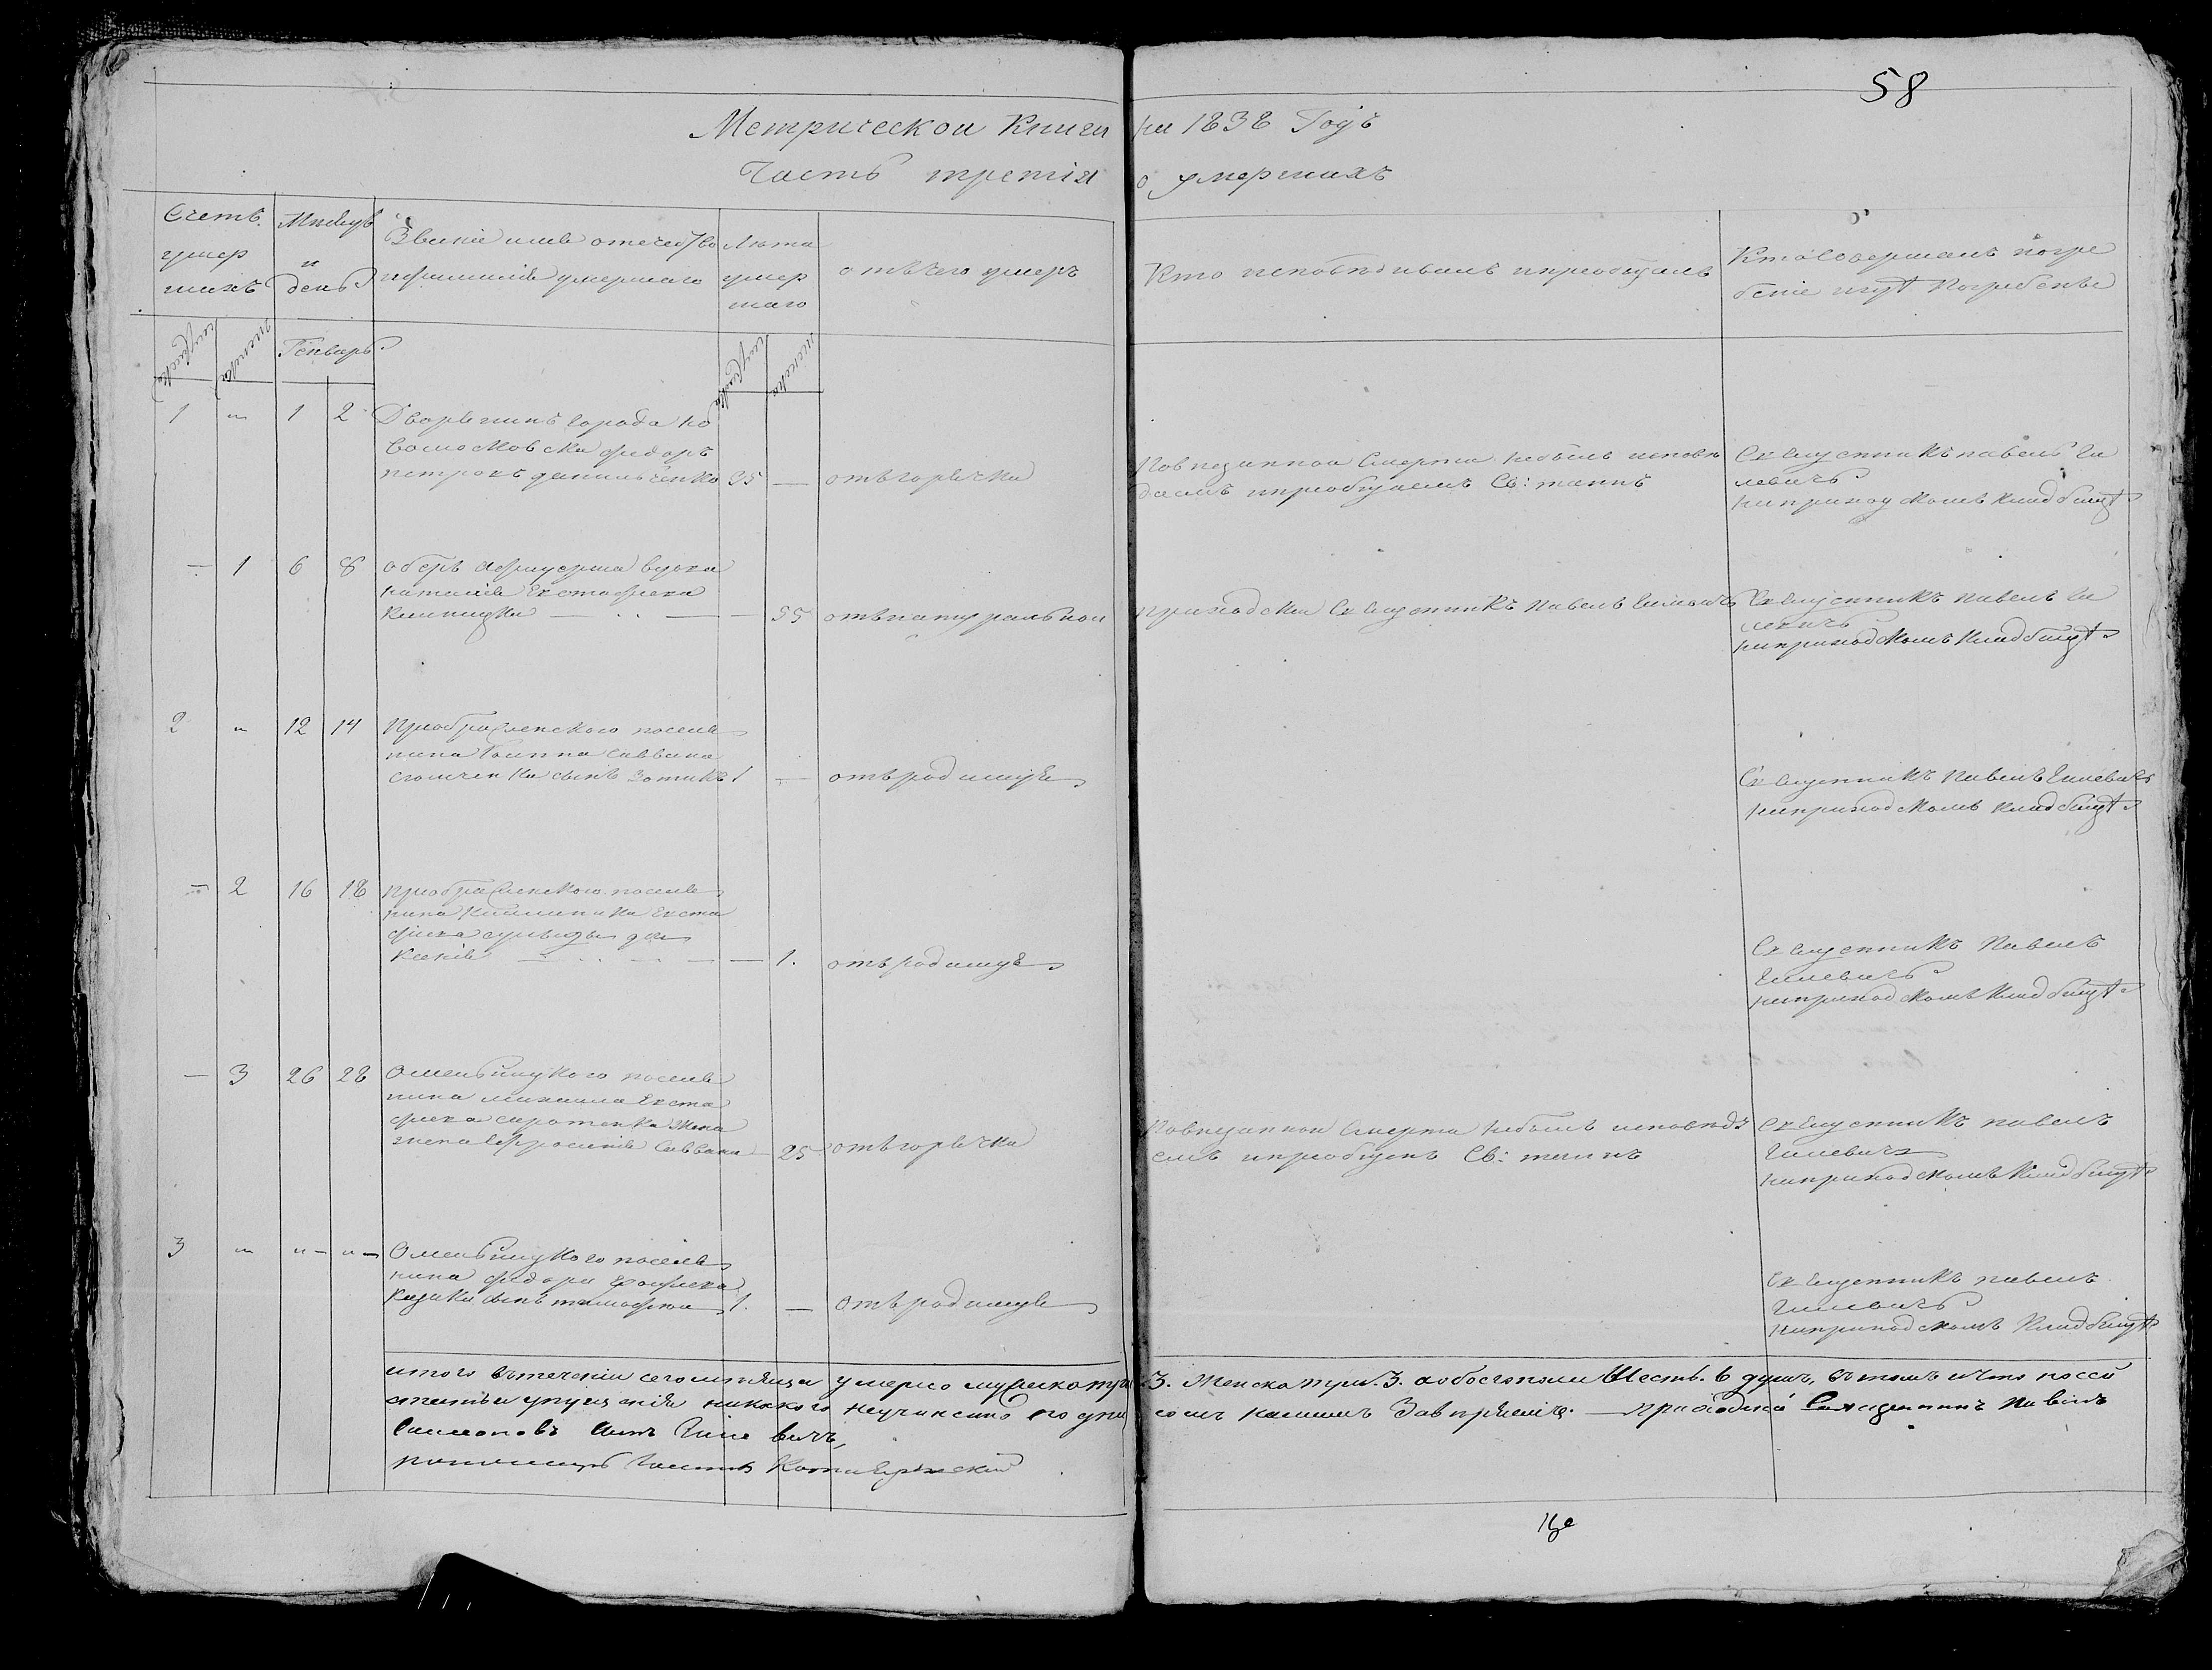 58
Метрической Книги на 1838 Годъ
Часть третія о умершихъ
Счетъ умер шихъ
Мѣсяцъ и день
Званіе имя отечество и фамилія умершаго
Лѣта умер шаго
отъ чего умеръ
Кто исповѣдивалъ и пріобщалъ
Кто совершалъ погре
беніе и гдѣ Погребены
мужеска
женска
Генварь
мужеска
женска
1 " 1 2 Дворянинъ города но
вомосковска федоръ
петровъ данильченко 25 — отъ горячки
По внезапной Смерти небылъ исповѣ
данъ и пріобщенъ Св: таинъ
Священникъ павелъ Ги
левичъ
на приходскомъ кладбищѣ
— 1 6 8 оберъ офицерша вдова
наталія Евстафіева
— 55 отъ натуральной
приходски Священникъ Павелъ Гилевичъ
Священникъ павелъ Ги
левичъ
на приходскомъ кладбищѣ
2 " 12 14 Преображенскаго поселя
нина Саввина
сынъ Зотикъ 1 — отъ родимца
Священникъ павелъ Гилевичъ
на приходскомъ кладбищѣ
— 2 16 18 преображенскаго поселя
нина Каллиника Евста
фіева дочь
Ксенія — 1. отъ родимца
Священникъ Павелъ
Гилевичъ
на приходскомъ кладбищѣ
— 3 26 28 Омельницкого поселя
нина михаила Евста
фіева сиротенка Жена
жена Ефросинія Саввина — 25 отъ горячки
По внезапной Смерти небылъ исповѣд
анъ и пріобщенъ Св: таинъ
Священникъ павелъ
Гилевичъ
на приходскомъ кладбищѣ
3 " "— "— Омельницкого поселя
нина федора
козака сынъ тимофей 1. — Отъ родимца
Священникъ павелъ
Гилевичъ
на приходскомъ Кладбищѣ
итого въ теченіи сего мѣсяца умерло мужеска три 3. Женска три. 3. а обоего пола Шесть. 6 душъ, въ томъ и что по сей
статьи упущенія никакого неучинено его Завѣряемъ. — приходской Священникъ Павелъ
Гилевичъ,